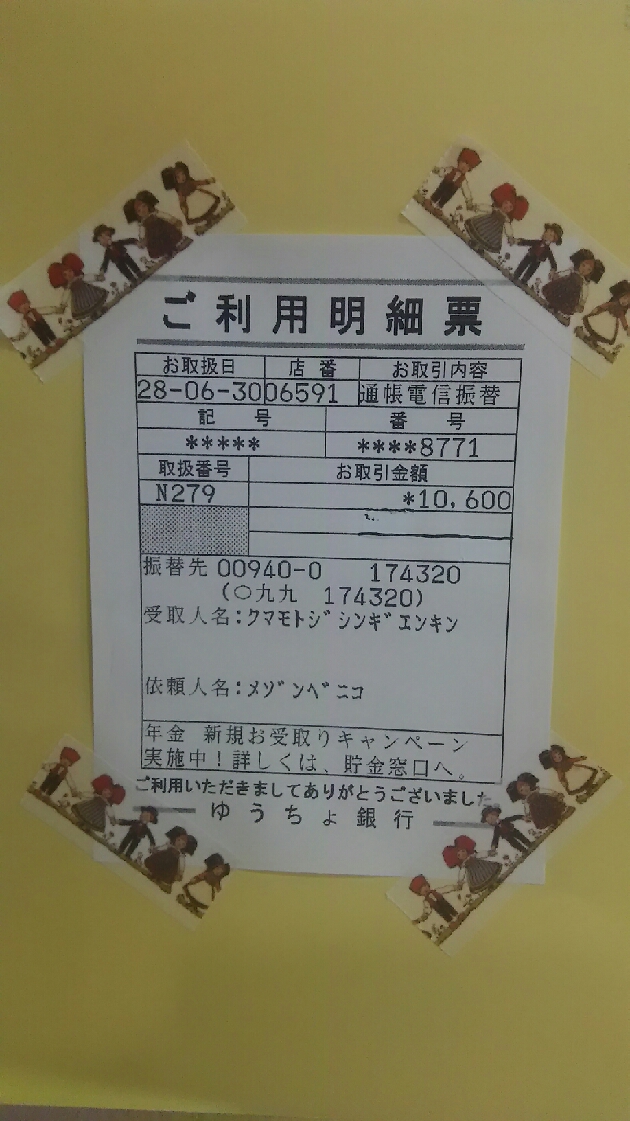 ご利用明細票
お取扱日 店番 お取引内容
28-06-30 06591 通帳電信振替
記号 番号
***** ****8771
取扱番号 お取引金額
N279 *10,600
振替先 00940-0 174320
(〇九九 174320)
受取人名:クマモトジシンギエンキン
依頼人名:メゾンベニコ
年金 新規お受取りキャンペーン
実施中!詳しくは、貯金窓口へ。
ご利用いただきましてありがとうございました
ゆうちょ銀行